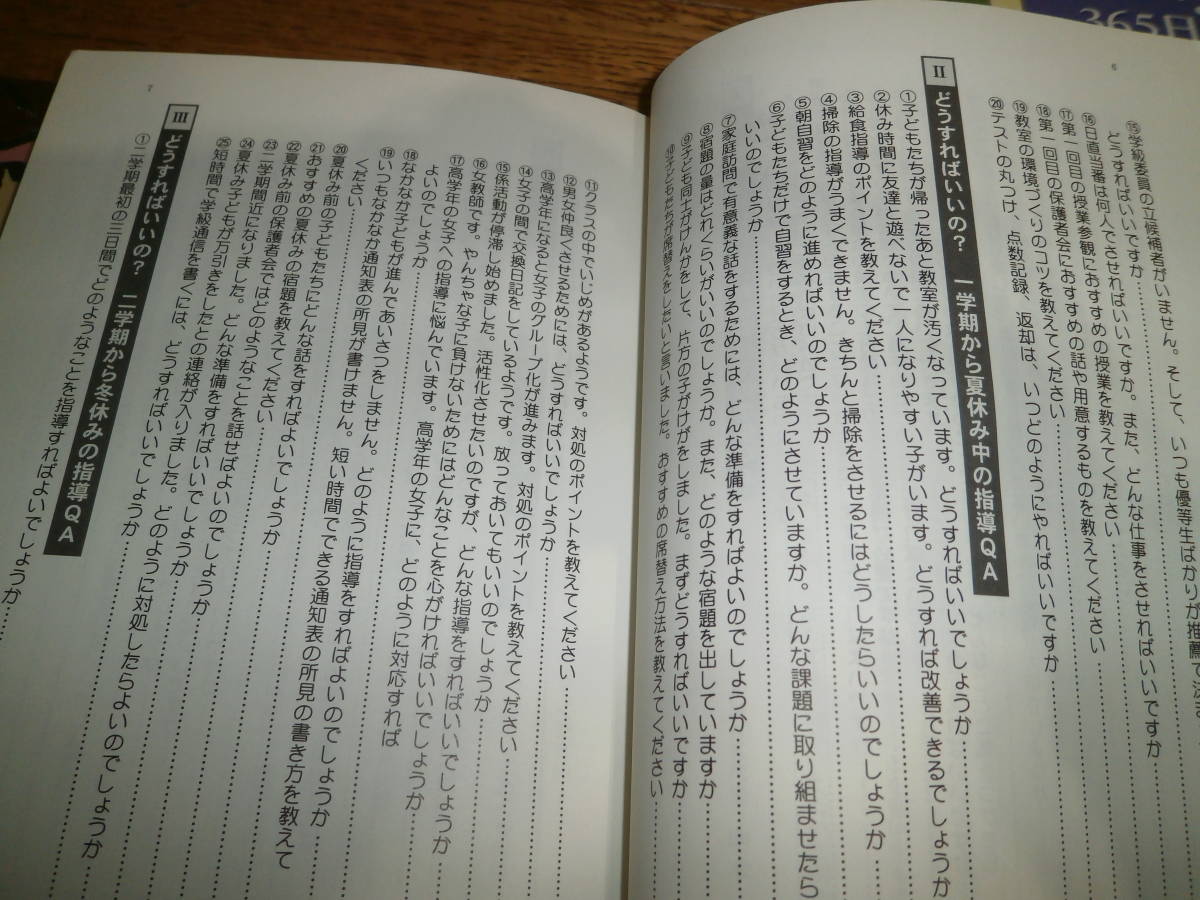 365日
6
⑮学級委員の立候補者がいません。そして、いつも優等生ばかりが推薦で
どうすればいいですか
⑯日直当番は何人でさせればいいですか。また、どんな仕事をさせればいいですか
⑰第一回目の授業参観におすすめの授業を教えてください
⑱第一回目の保護者会におすすめの話や用意するものを教えてください
⑲教室の環境づくりのコツを教えてください
⑳テストの丸つけ、点数記録、返却は、いつどのようにやればいいですか
Ⅱ どうすればいいの? 一学期から夏休み中の指導QA
①子どもたちが帰ったあと教室が汚くなっています。どうすればいいでしょうか
②休み時間に友達と遊べないで一人になりやすい子がいます。どうすれば改善できるでしょうか
③給食指導のポイントを教えてください
④掃除の指導がうまくできません。きちんと掃除をさせるにはどうしたらいいのでしょうか
⑤朝自習をどのように進めればいいのでしょうか
⑥子どもたちだけで自習をするとき、どのようにさせていますか。どんな課題に取り組ませたら
いいのでしょうか
⑦家庭訪問で有意義な話をするためには、どんな準備をすればよいのでしょうか
⑧宿題の量はどれくらいがいいのでしょうか。また、どのような宿題を出していますか
⑨子ども同士がけんかをして、片方の子がけがをしました。まずどうすればいいですか
⑩子どもたちが席替えをしたいと言いました。おすすめの席替え方法を教えてください
7
⑪クラスの中でいじめがあるようです。対処のポイントを教えてください
⑫男女仲良くさせるためには、どうすればいいでしょうか
⑬高学年になると女子のグループ化が進みます。対処のポイントを教えてください
⑭女子の間で交換日記をしているようです。放っておいてもいいのでしょうか
⑮係活動が停滞し始めました。活性化させたいのですが、どんな指導をすればいいでしょうか
⑯女教師です。やんちゃな子に負けないためにはどんなことを心がければいいでしょうか
⑰高学年の女子への指導に悩んでいます。高学年の女子に、どのように対応すれば
よいのでしょうか
⑱なかなか子どもが進んであいさつをしません。どのように指導をすればよいのでしょうか
⑲いつもなかなか通知表の所見が書けません。短い時間でできる通知表の所見の書き方を教えて
ください
⑳夏休み前の子どもたちにどんな話をすればよいでしょうか
㉑おすすめの夏休みの宿題を教えてください
㉒夏休み前の保護者会ではどのようなことを話せばよいのでしょうか
㉓二学期間近になりました。どんな準備をすればいいでしょうか
㉔夏休み子どもが万引きをしたとの連絡が入りました。どのように対処したらよいのでしょうか
㉕短時間で学級通信を書くには、どうすればいいでしょうか
Ⅲ どうすればいいの? 二学期から冬休みの指導QA
①二学期最初の三日間でどのようなことを指導すればよいでしょうか